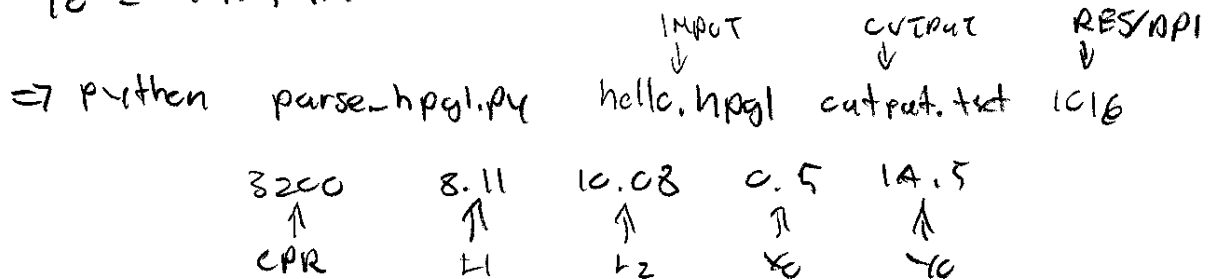 INPUT OUTPUT RES/DPI
↓ ↓ ↓
=> python parse_hpgl.py hello.hpgl output.txt 1016
3200 8.11 10.08 0.5 14.5
↑ ↑ ↑ ↑ ↑
CPR L1 L2 X0 Y0